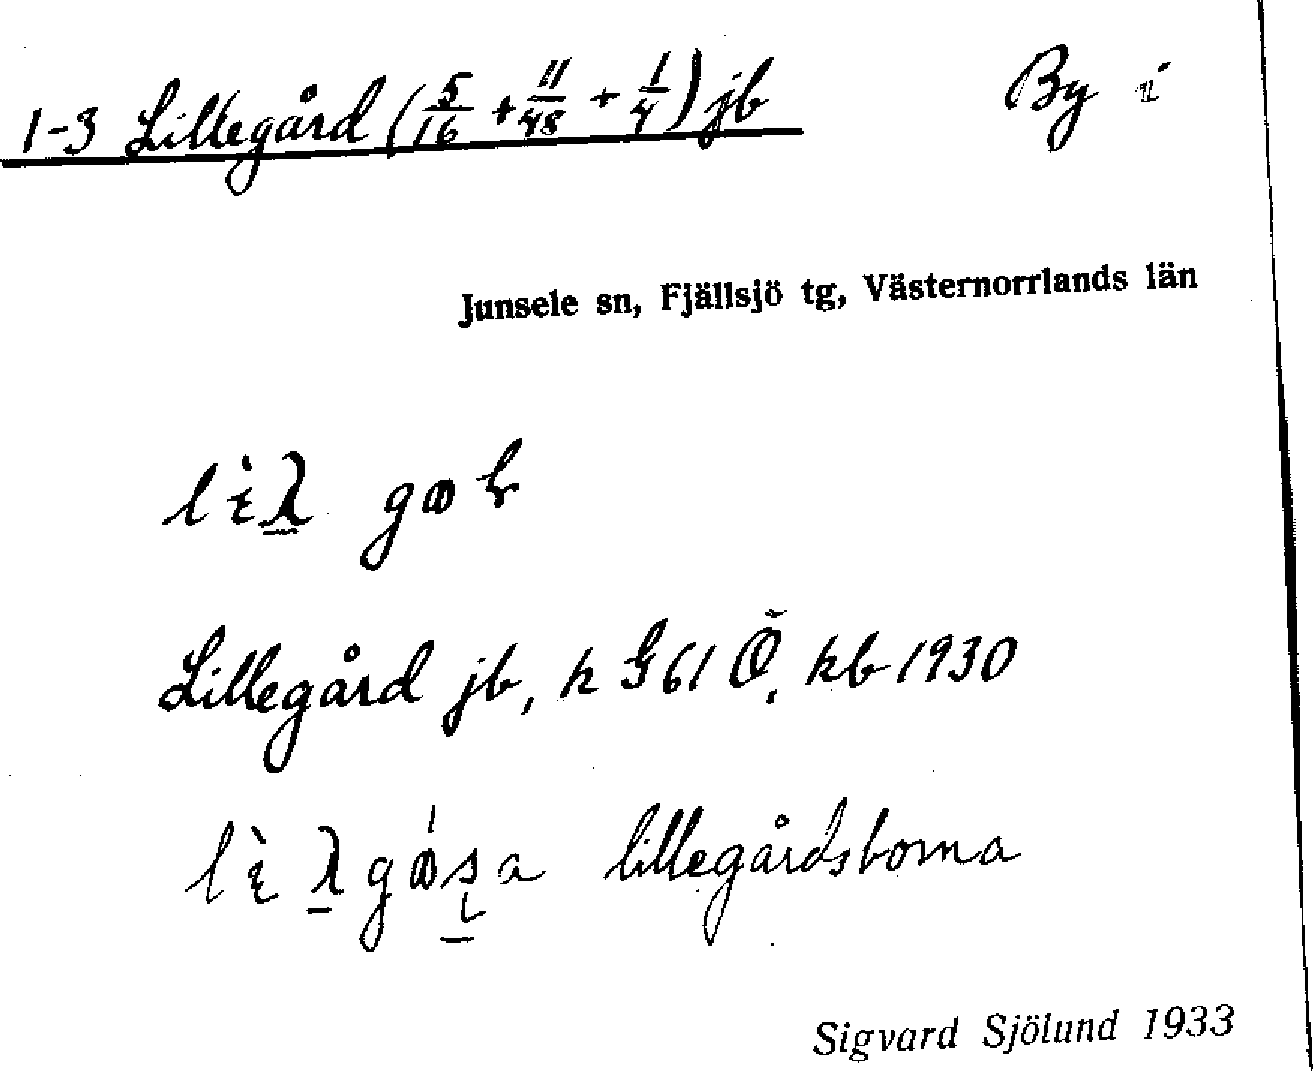 1-3 Lillegård (5/16 + 11/48 + 1/4) jb By i
Junsele sn, Fjällsjö tg, Västernorrlands län
Lillegård jb, k G 61 Ö, kb 1930
lillegårdsborna
Sigvard Sjölund 1933